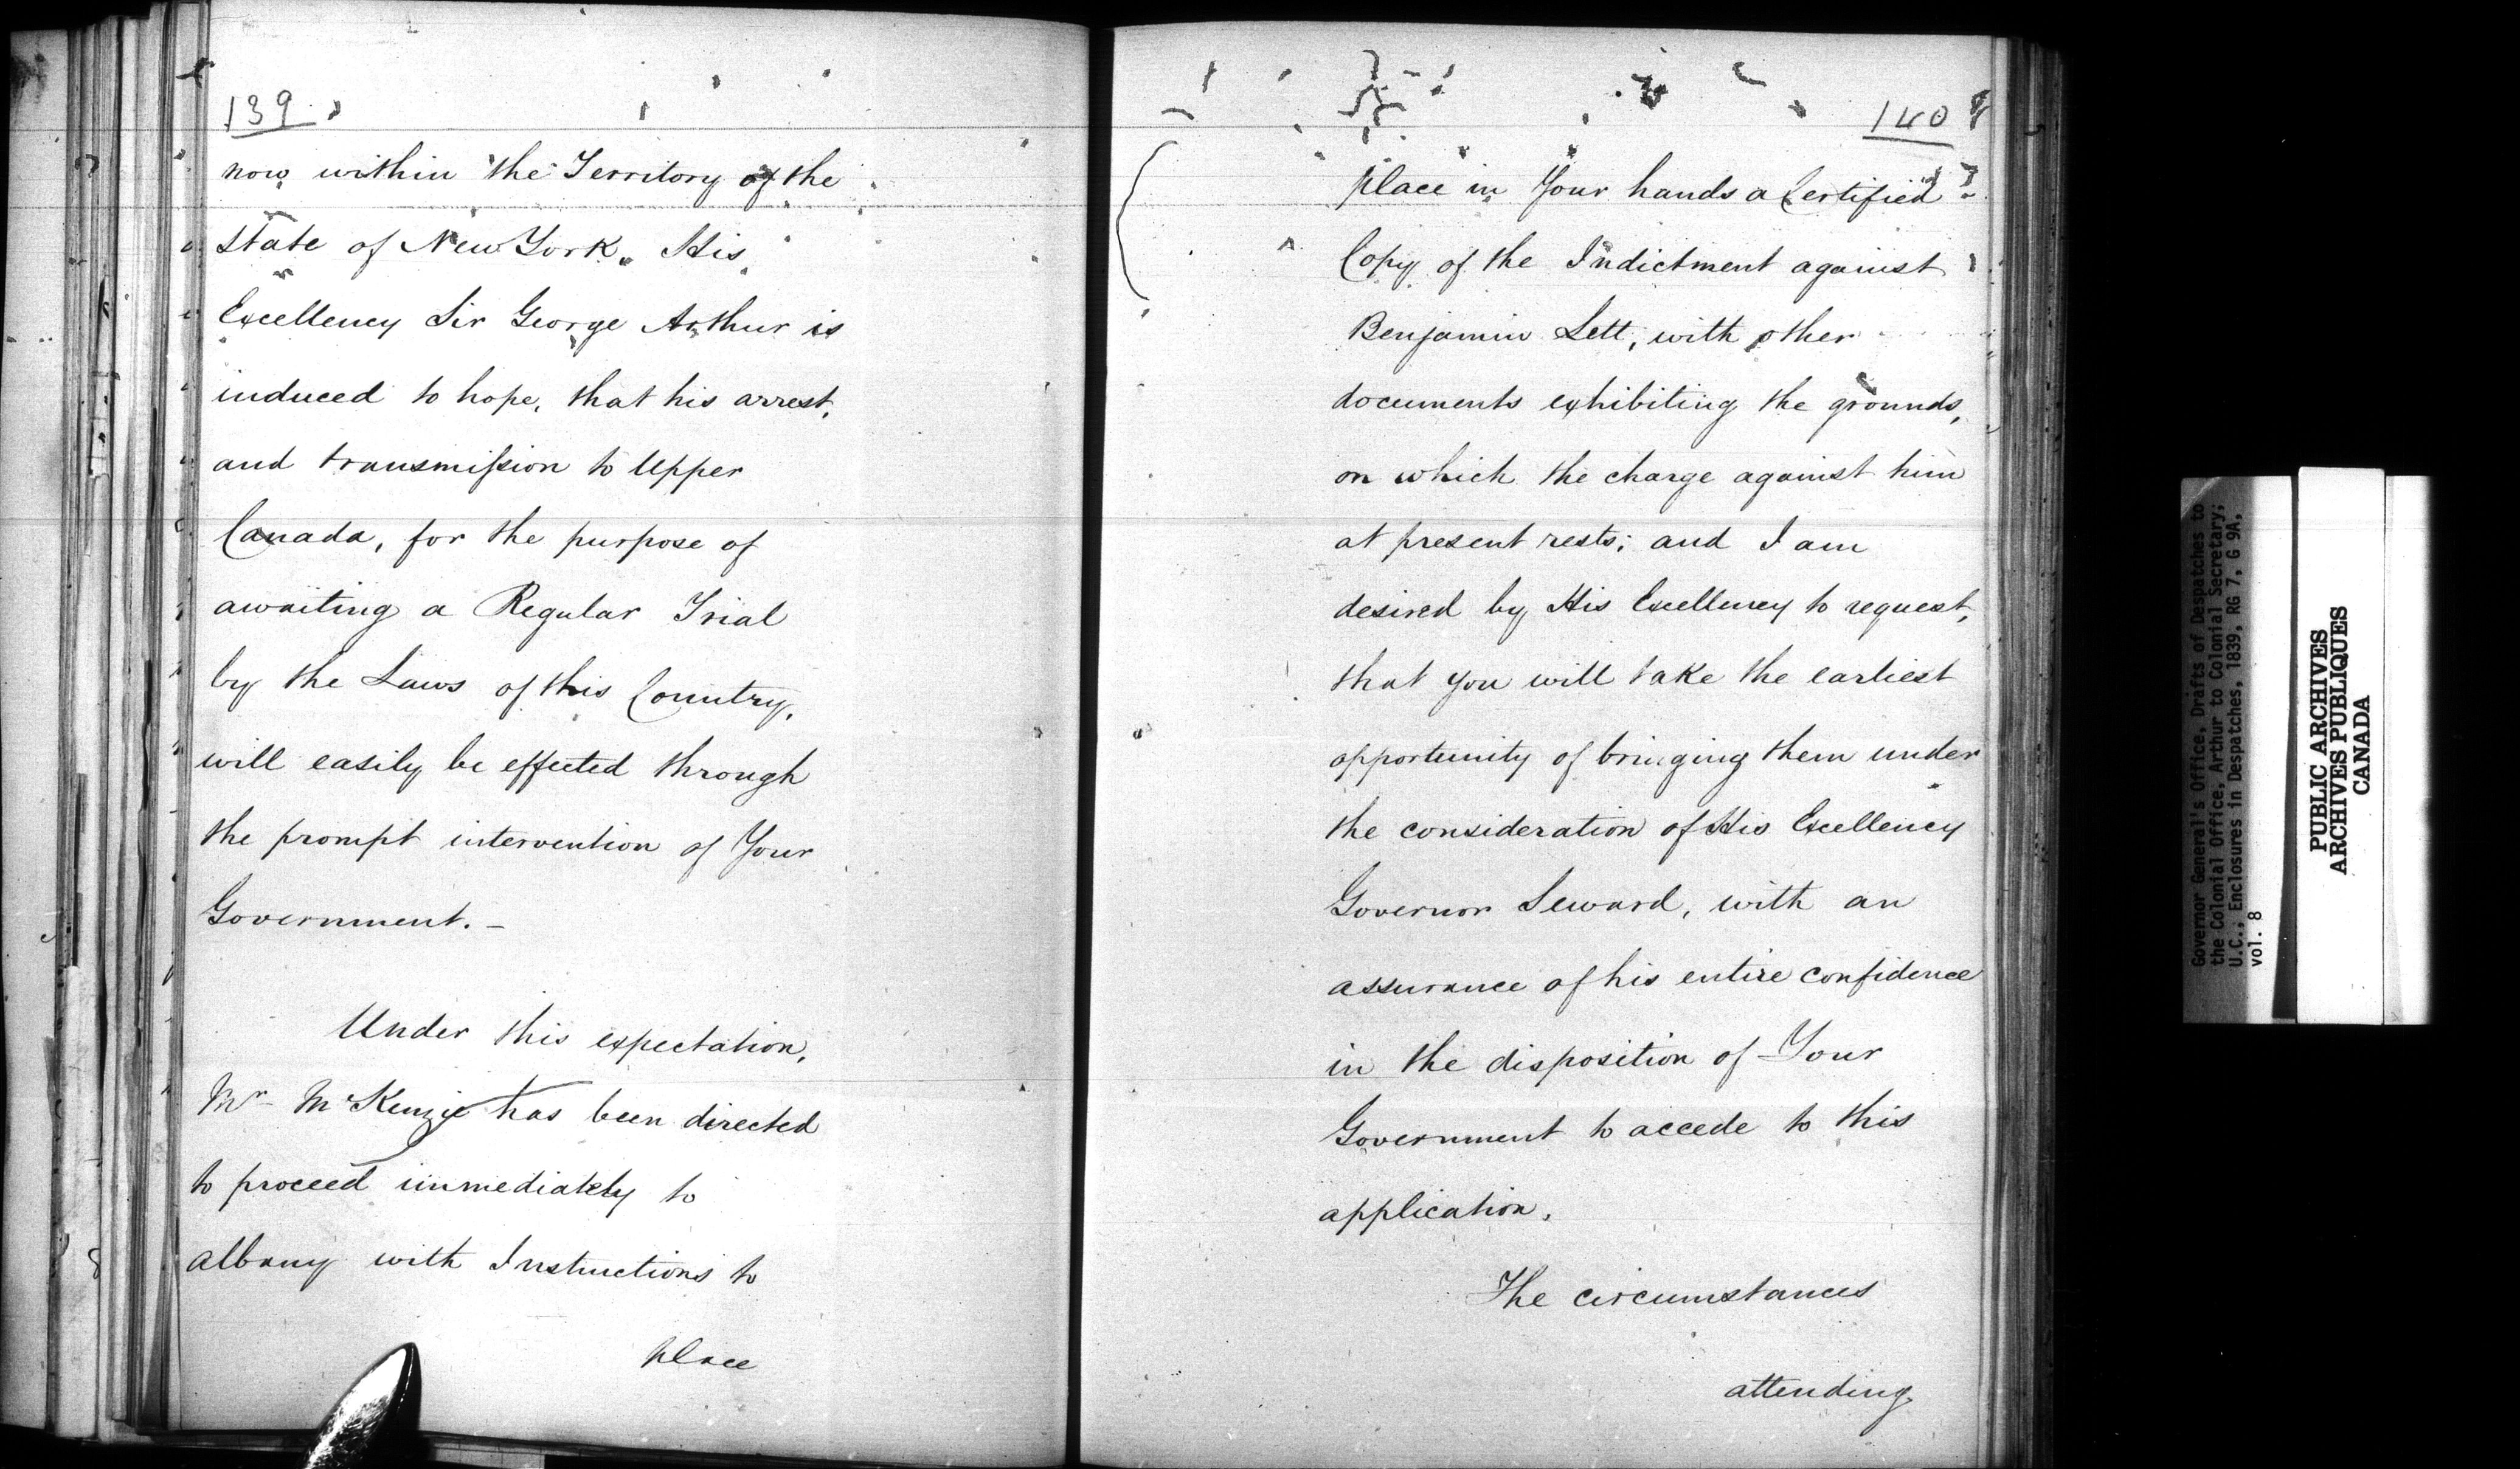 139
now within the Territory of the
state of New York. His
Excellency Sir George Arthur is
induced to hope, that his arrest,
and transmission to Upper
Canada, for the purpose of
awaiting a Regular Trial
by the Laws of this Country,
will easily be effected through
the prompt intervention of Your
Government. -
Under this expectation,
Mr McKenzie has been directed
to proceed immediately to
Albany with Instructions to
place
140
place in Your hands a Certified
Copy of the Indictment against
Benjamin Lett, with other
documents exhibiting the grounds,
on which the charge against him
at present rests; and I am
desired by His Excellency to request,
that you will take the earliest
opportunity of bringing them under
the consideration of His Excellency
Governor Seward, with an
assurance of his entire confidence
in the disposition of Your
Government to accede to this
application.
The circumstances
attending
Governor General's Office, Drafts of Despatches to
the Colonial Office, Arthur to Colonial Secretary;
U.C., Enclosures in Despatches, 1839, RG 7, G 9A,
vol. 8
PUBLIC ARCHIVES
ARCHIVES PUBLIQUES
CANADA